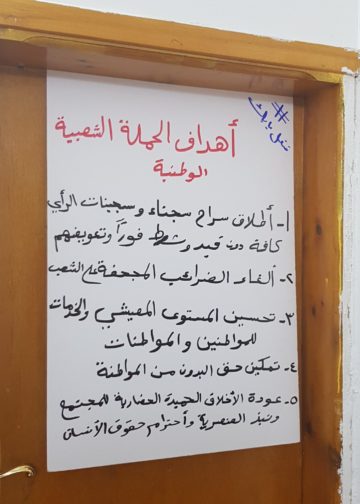 أهداف الحملة الشعبية
الوطنية
١- أطلاق سراح سجناء وسجينات الرأي
كافة دون قيد وشرط فوراً وتعويضهم
٢- ألغاء الضرائب المجحفة على الشعب
٣- تحسين المستوى المعيشي والخدمات
للمواطنين والمواطنات
٤- تمكين حق البدون من المواطنة
٥- عودة الأخلاق الحميدة الحضارية للمجتمع
ونبذ العنصرية وأحترام حقوق الأنسان